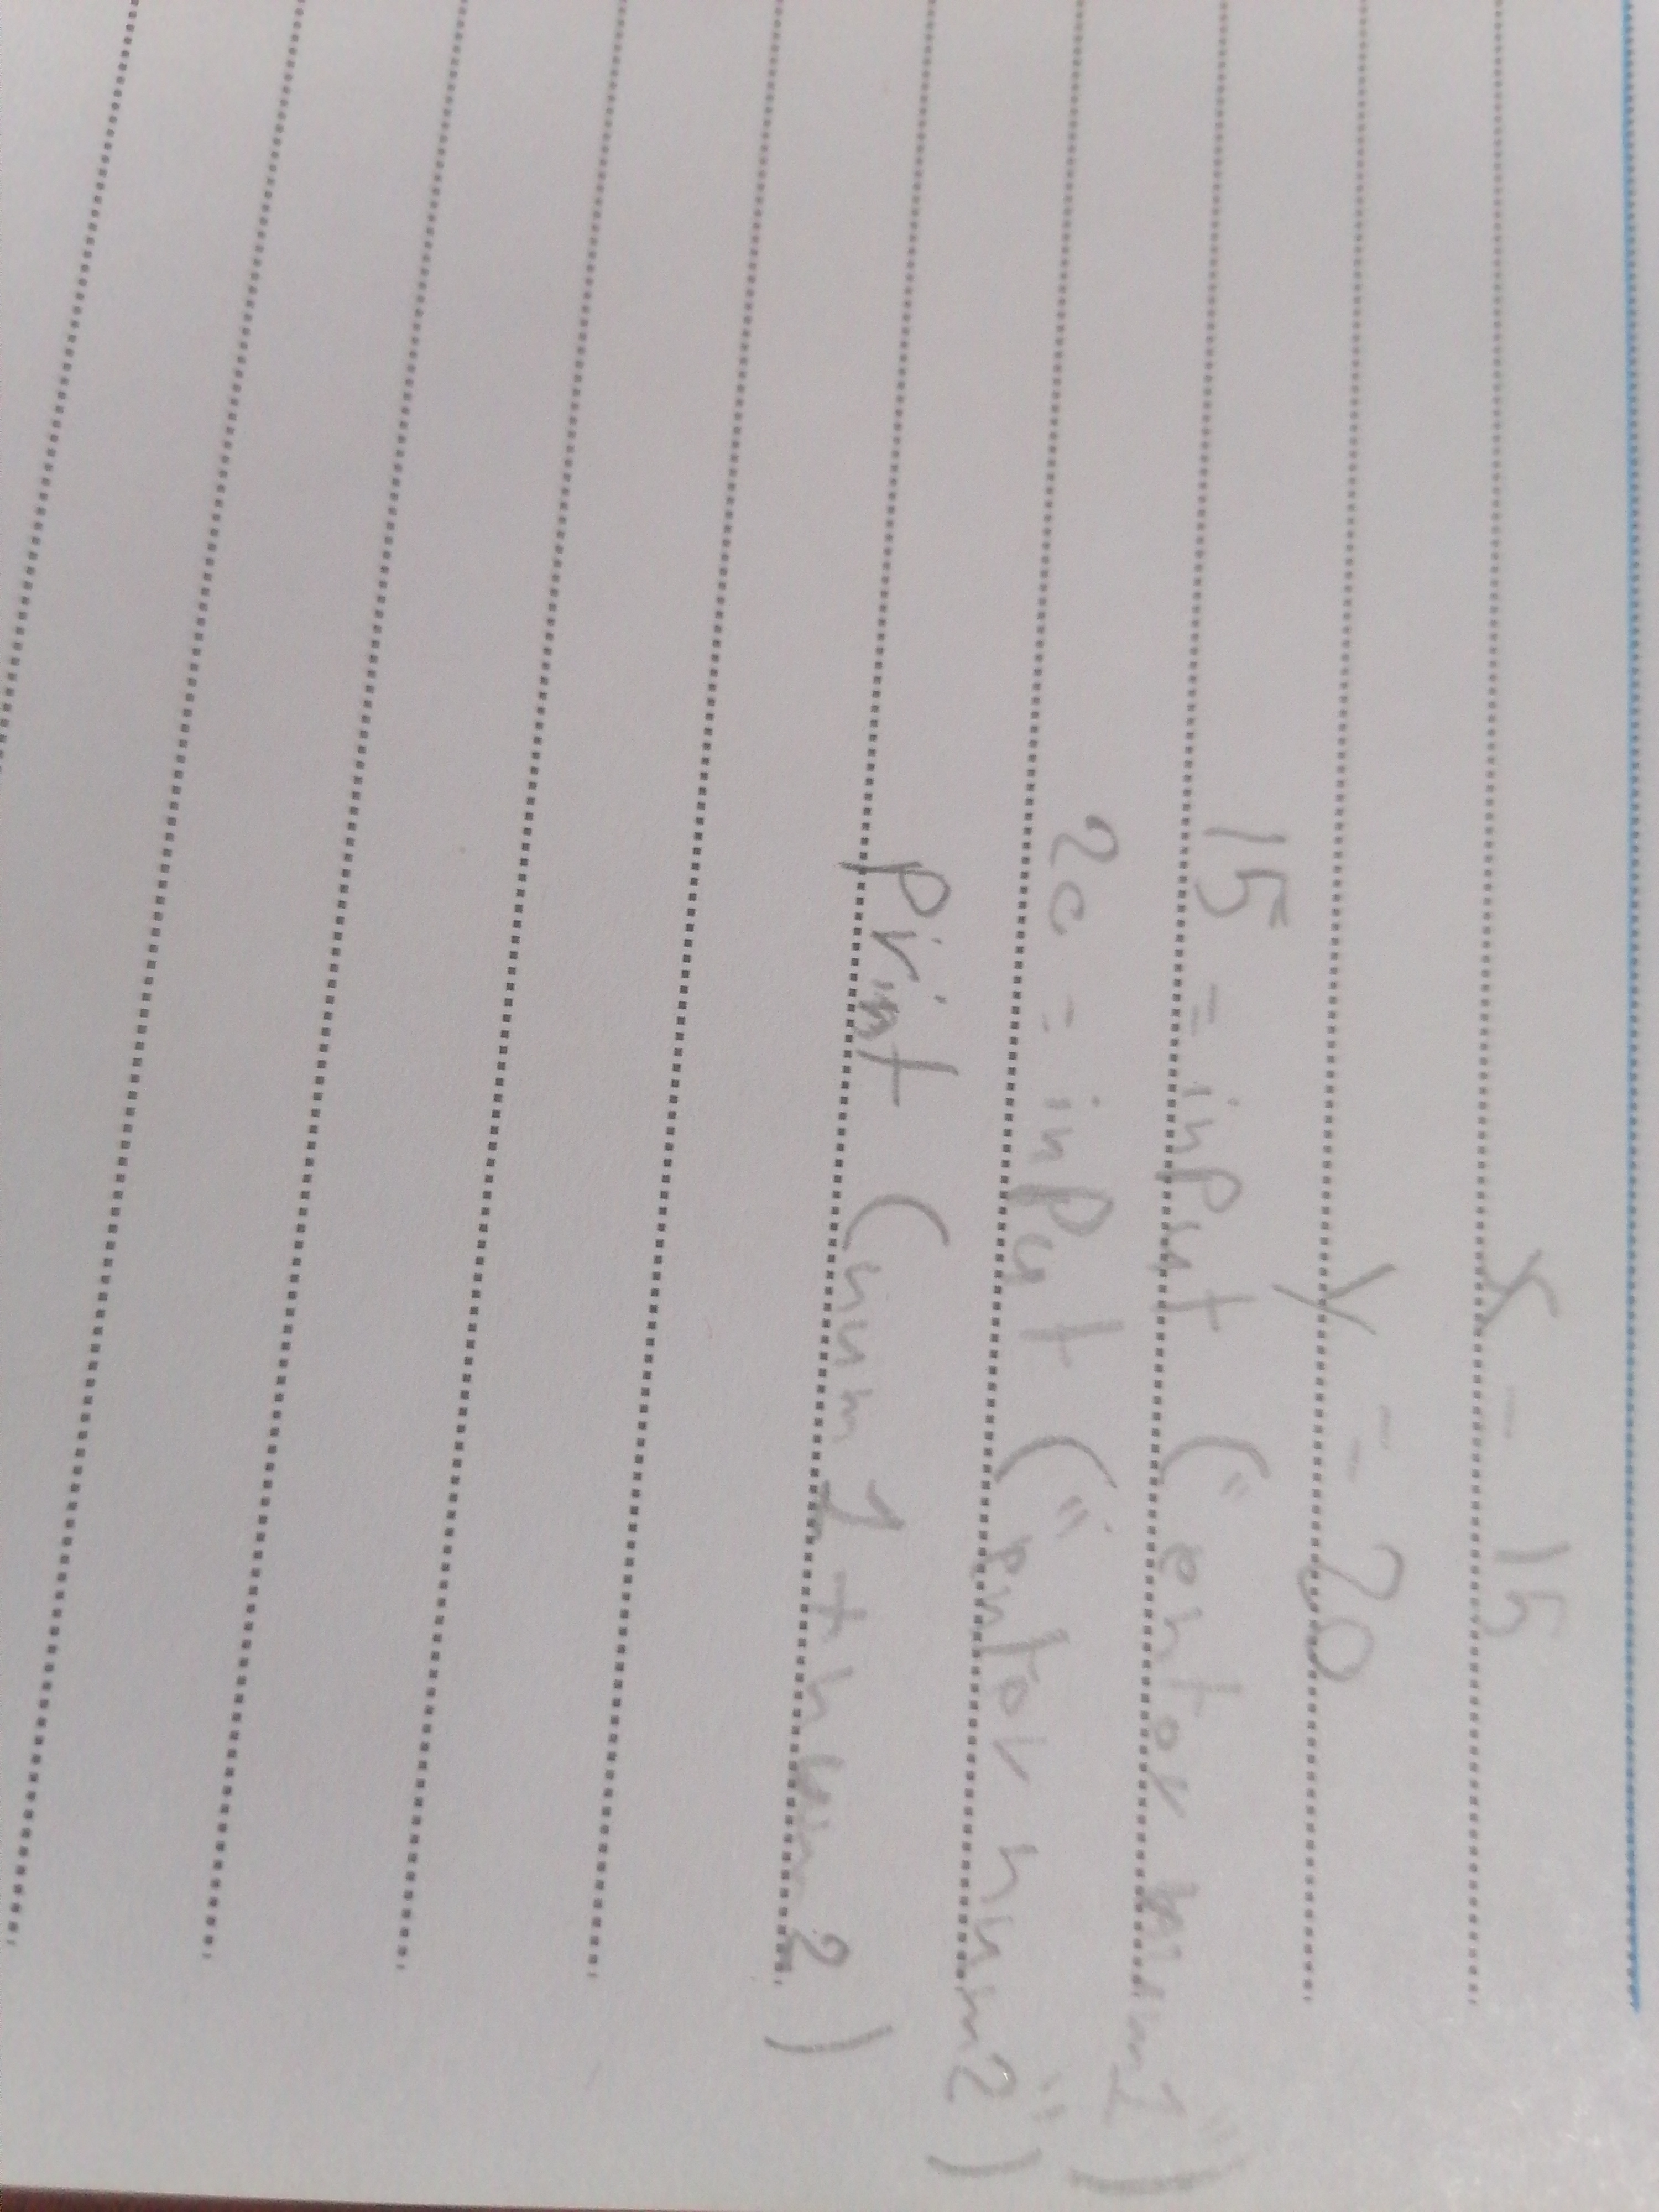 X = 15
Y = 20
15 = input ("entor num1")
20 = input ("entor num2")
Print (num1 + num2)